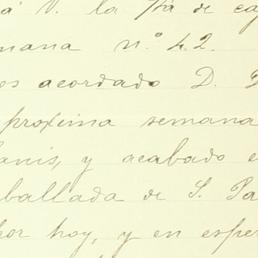 V. la de
mana n.º 42.
os acordado D.
proxima semana
y acabado e
ballada de S. Pa
hoy, y en esper